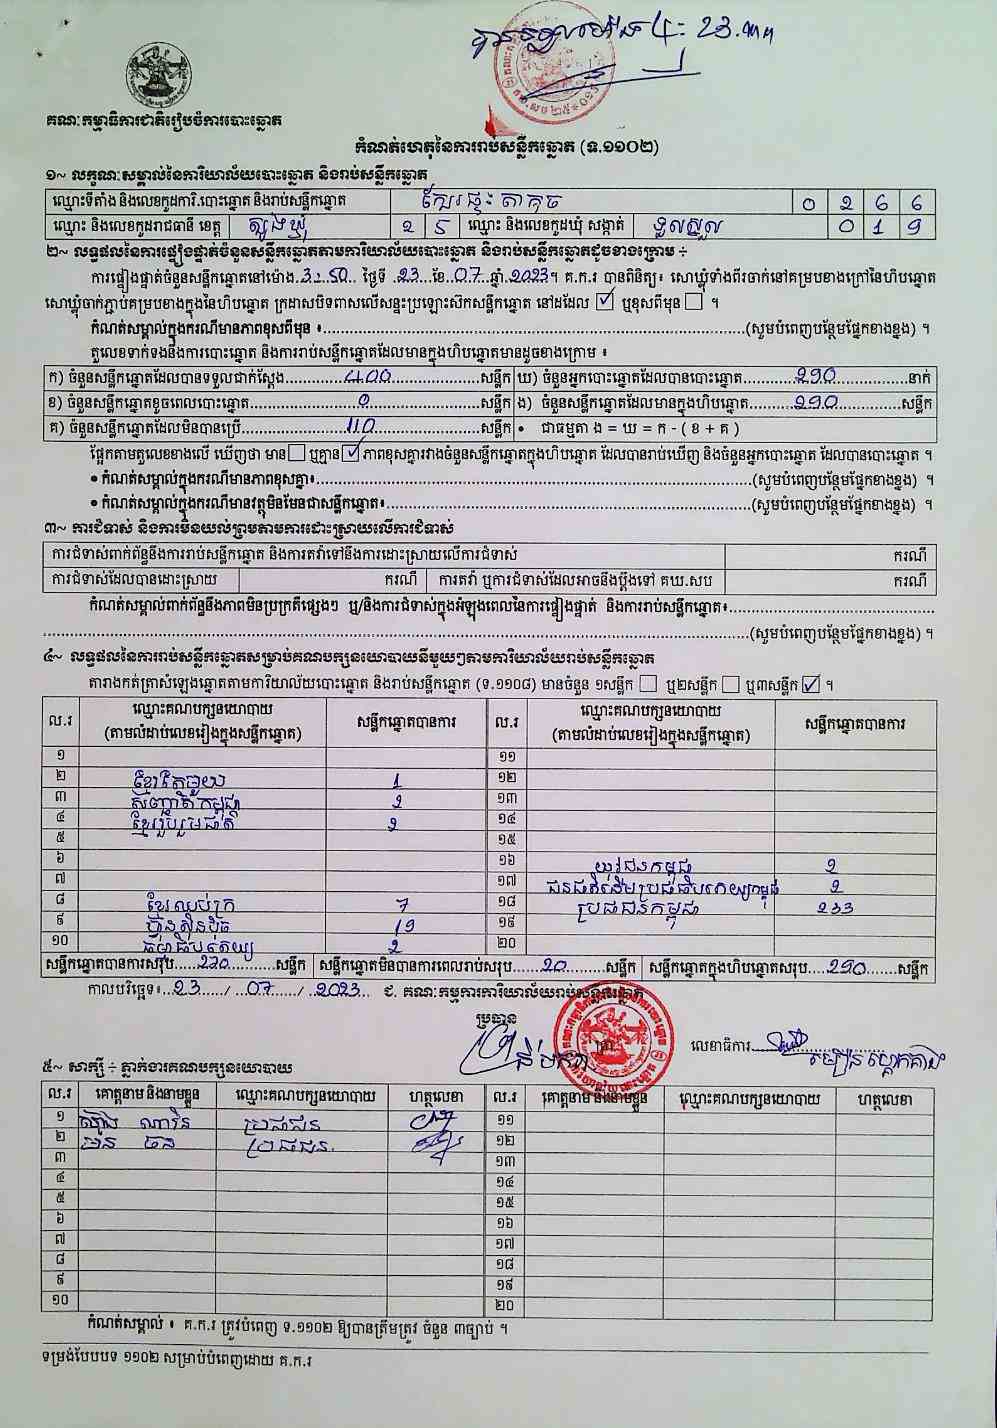 បានទទួលម៉ោង ៤: 23.៣៣
គណៈកម្មាធិការជាតិរៀបចំការបោះឆ្នោត
កំណត់ហេតុនៃការរាប់សន្លឹកឆ្នោត (ទ.១១០២)
១~ លក្ខណៈសម្គាល់នៃការិយាល័យបោះឆ្នោត និងរាប់សន្លឹកឆ្នោត
ឈ្មោះទីតាំង និងលេខកូដការិ.បោះឆ្នោត និងរាប់សន្លឹកឆ្នោត ក្បែរផ្ទះតាកុច ០ ២ ៦ ៦
ឈ្មោះ និងលេខកូដរាជធានី ខេត្ត ត្បូងឃ្មុំ ២ ៥ ឈ្មោះ និងលេខកូដឃុំ សង្កាត់ ទួលស្នួល ០ ១ ១ ៩
២~ លទ្ធផលនៃការផ្ទៀងផ្ទាត់ចំនួនសន្លឹកឆ្នោតតាមការិយាល័យបោះឆ្នោត និងរាប់សន្លឹកឆ្នោតដូចខាងក្រោម ÷
ការផ្ទៀងផ្ទាត់ចំនួនសន្លឹកឆ្នោតនៅម៉ោង.3:50.. ថ្ងៃទី .23..ខែ.07.ឆ្នាំ.2023។ គ.ក.រ បានពិនិត្យ៖ សោឃ្លុំទាំងពីរចាក់នៅគម្របខាងក្រៅនៃហិបឆ្នោត
សោឃ្លុំចាក់ភ្ជាប់គម្របខាងក្នុងនៃហិបឆ្នោត ក្រដាសបិទពាសលើសន្ទះប្រឡោះស៊ីកសន្លឹកឆ្នោត នៅដដែល ☑ ឬខុសពីមុន ☐ ។
កំណត់សម្គាល់ក្នុងករណីមានភាពខុសពីមុន ៖.....(សូមបំពេញបន្ថែមផ្នែកខាងខ្នង) ។
តួលេខទាក់ទងនឹងការបោះឆ្នោត និងការរាប់សន្លឹកឆ្នោតដែលមានក្នុងហិបឆ្នោតមានដូចខាងក្រោម ៖
ក) ចំនួនសន្លឹកឆ្នោតដែលបានទទួលជាក់ស្ដែង.....400.....សន្លឹក ឃ) ចំនួនអ្នកបោះឆ្នោតដែលបានបោះឆ្នោត.....290.....នាក់
ខ) ចំនួនសន្លឹកឆ្នោតខូចពេលបោះឆ្នោត.....0.....សន្លឹក ង) ចំនួនសន្លឹកឆ្នោតដែលមានក្នុងហិបឆ្នោត.....290.....សន្លឹក
គ) ចំនួនសន្លឹកឆ្នោតដែលមិនបានប្រើ.....110.....សន្លឹក • ជាធម្មតា ង = ឃ = ក - ( ខ + គ )
ផ្អែកតាមតួលេខខាងលើ ឃើញថា មាន ☐ ឬគ្មាន ☑ ភាពខុសគ្នារវាងចំនួនសន្លឹកឆ្នោតក្នុងហិបឆ្នោត ដែលបានរាប់ឃើញ និងចំនួនអ្នកបោះឆ្នោត ដែលបានបោះឆ្នោត ។
• កំណត់សម្គាល់ក្នុងករណីមានភាពខុសគ្នា៖.....(សូមបំពេញបន្ថែមផ្នែកខាងខ្នង) ។
• កំណត់សម្គាល់ក្នុងករណីមានវត្ថុមិនមែនជាសន្លឹកឆ្នោត៖.....(សូមបំពេញបន្ថែមផ្នែកខាងខ្នង) ។
៣~ ការជំទាស់ និងការមិនយល់ព្រមតាមការដោះស្រាយលើការជំទាស់
ការជំទាស់ពាក់ព័ន្ធនឹងការរាប់សន្លឹកឆ្នោត និងការតវ៉ាទៅនឹងការដោះស្រាយលើការជំទាស់ ករណី
ការជំទាស់ដែលបានដោះស្រាយ ករណី ការតវ៉ា ឬការជំទាស់ដែលអាចនឹងប្ដឹងទៅ គឃ.សប ករណី
កំណត់សម្គាល់ពាក់ព័ន្ធនឹងភាពមិនប្រក្រតីផ្សេងៗ ឬ/និងការជំទាស់ក្នុងអំឡុងពេលនៃការផ្ទៀងផ្ទាត់ និងការរាប់សន្លឹកឆ្នោត៖.....
.....(សូមបំពេញបន្ថែមផ្នែកខាងខ្នង) ។
៤~ លទ្ធផលនៃការរាប់សន្លឹកឆ្នោតសម្រាប់គណបក្សនយោបាយនីមួយៗតាមការិយាល័យរាប់សន្លឹកឆ្នោត
តារាងកត់ត្រាសំឡេងឆ្នោតតាមការិយាល័យបោះឆ្នោត និងរាប់សន្លឹកឆ្នោត (ទ.១១០៨) មានចំនួន ១សន្លឹក ☐ ឬ២សន្លឹក ☐ ឬ៣សន្លឹក ☑ ។
ល.រ ឈ្មោះគណបក្សនយោបាយ (តាមលំដាប់លេខរៀងក្នុងសន្លឹកឆ្នោត) សន្លឹកឆ្នោតបានការ ល.រ ឈ្មោះគណបក្សនយោបាយ (តាមលំដាប់លេខរៀងក្នុងសន្លឹកឆ្នោត) សន្លឹកឆ្នោតបានការ
១ ១១
២ ខ្មែរតែមួយ 1 ១២
៣ សញ្ជាតិកម្ពុជា 2 ១៣
៤ ខ្មែររួបរួមជាតិ 2 ១៤
៥ ១៥
៦ ១៦ យុវជនកម្ពុជា 2
៧ ១៧ ជនជាតិដើមប្រជាធិបតេយ្យកម្ពុជា 2
៨ ខ្មែរឈប់ក្រ 7 ១៨ ប្រជាជនកម្ពុជា 233
៩ ហ្វ៊ុនស៊ិនប៉ិច 19 ១៩
១០ ធម្មាធិបតេយ្យ 2 ២០
សន្លឹកឆ្នោតបានការសរុប.....270.....សន្លឹក សន្លឹកឆ្នោតមិនបានការពេលរាប់សរុប.....20.....សន្លឹក សន្លឹកឆ្នោតក្នុងហិបឆ្នោតសរុប.....290.....សន្លឹក
កាលបរិច្ឆេទ៖..23..../..07..../..2023.. ជ. គណៈកម្មការការិយាល័យរាប់សន្លឹកឆ្នោត
ប្រធាន
លេខាធិការ
៥~ សាក្សី ÷ ភ្នាក់ងារគណបក្សនយោបាយ
ល.រ គោត្តនាម និងនាមខ្លួន ឈ្មោះគណបក្សនយោបាយ ហត្ថលេខា ល.រ គោត្តនាម និងនាមខ្លួន ឈ្មោះគណបក្សនយោបាយ ហត្ថលេខា
១ ណាវិន ប្រជាជន ១១
២ ម៉ន ប្រជាជន. ១២
៣ ១៣
៤ ១៤
៥ ១៥
៦ ១៦
៧ ១៧
៨ ១៨
៩ ១៩
១០ ២០
កំណត់សម្គាល់ ៖ គ.ក.រ ត្រូវបំពេញ ទ.១១០២ ឱ្យបានត្រឹមត្រូវ ចំនួន ៣ច្បាប់ ។
ទម្រង់បែបបទ ១១០២ សម្រាប់បំពេញដោយ គ.ក.រ